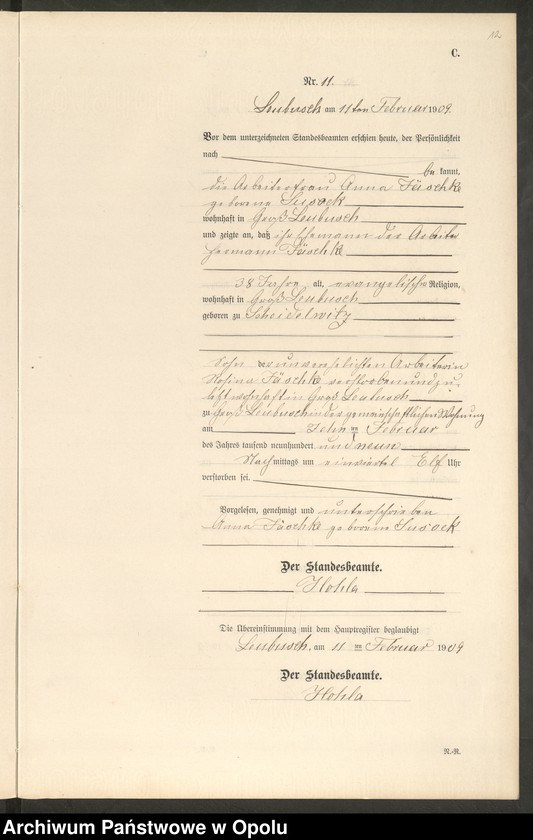 12
C.
Nr. 11.
Leubusch am 11ten Februar 1909.
Vor dem unterzeichneten Standesbeamten erschien heute, der Persönlichkeit
nach
bekannt,
die Arbeiterfrau Anna Jäschke
geborene Susock
wohnhaft in Groß Leubusch
und zeigte an, daß ihr Ehemann der Arbeiter
Hermann Jäschke
38 Jahre alt, evangelischer Religion,
wohnhaft in Groß Leubusch
geboren zu Scheidelwitz
Sohn der unverehelichten Arbeiterin
Rosina Jäschke verstorben und zu-
letzt wohnhaft in Groß Leubusch
zu Groß Leubusch in der gemeinschaftlichen Wohnung
am Zehnten Februar
des Jahres tausend neunhundert und neun
Nachmittags um einviertel Elf Uhr
verstorben sei.
Vorgelesen, genehmigt und unterschrieben
Anna Jäschke geborene Susock
Der Standesbeamte.
Hohla
Die Übereinstimmung mit dem Hauptregister beglaubigt
Leubusch, am 11ten Februar 1909
Der Standesbeamte.
Hohla
R.-R.
Archiwum Państwowe w Opolu